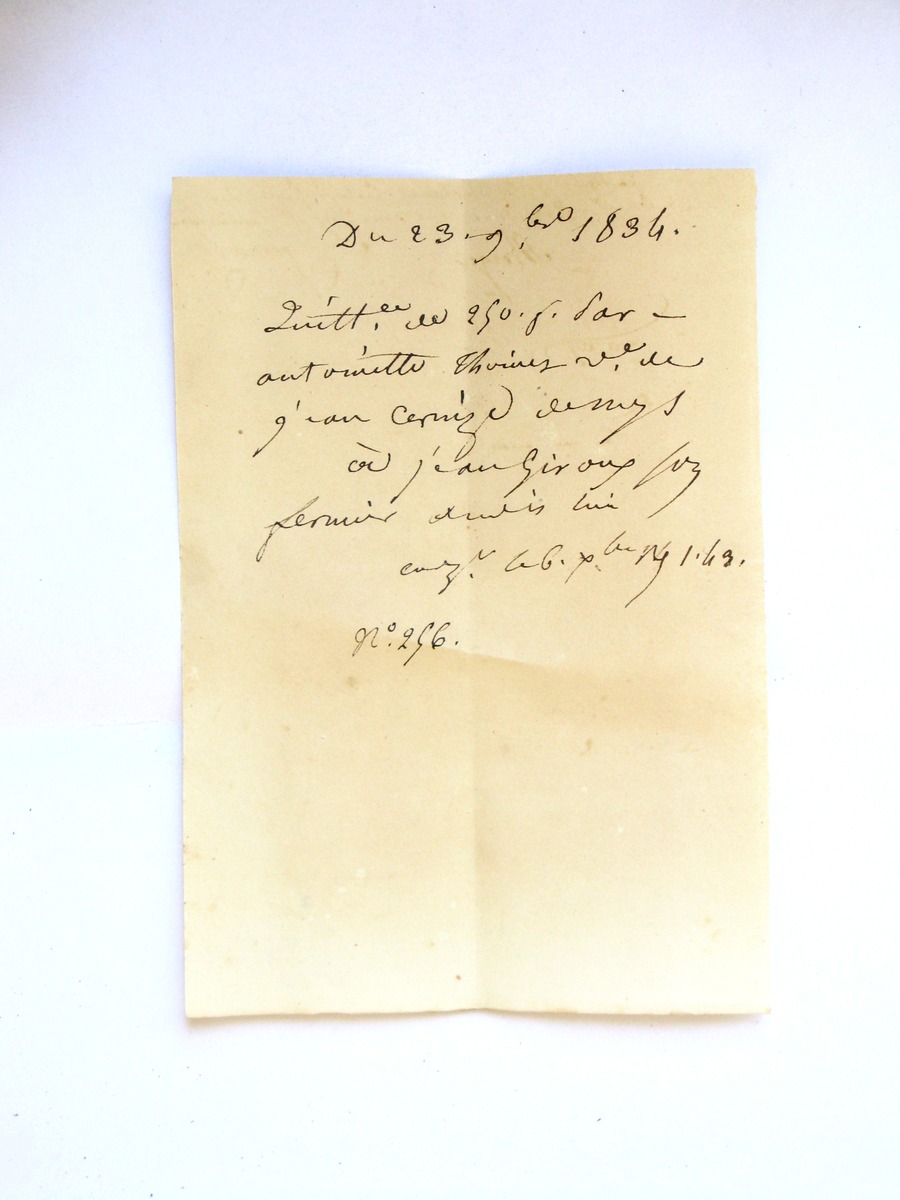 Du 23. 9.bre 1834.
Quitt.ce de 250. f. par
antoinette Thoinet v.e de
jean Cernize de mys
à jean Giroux son
fermier
enreg. le 6. x.bre 1. 43.
N.o 256.